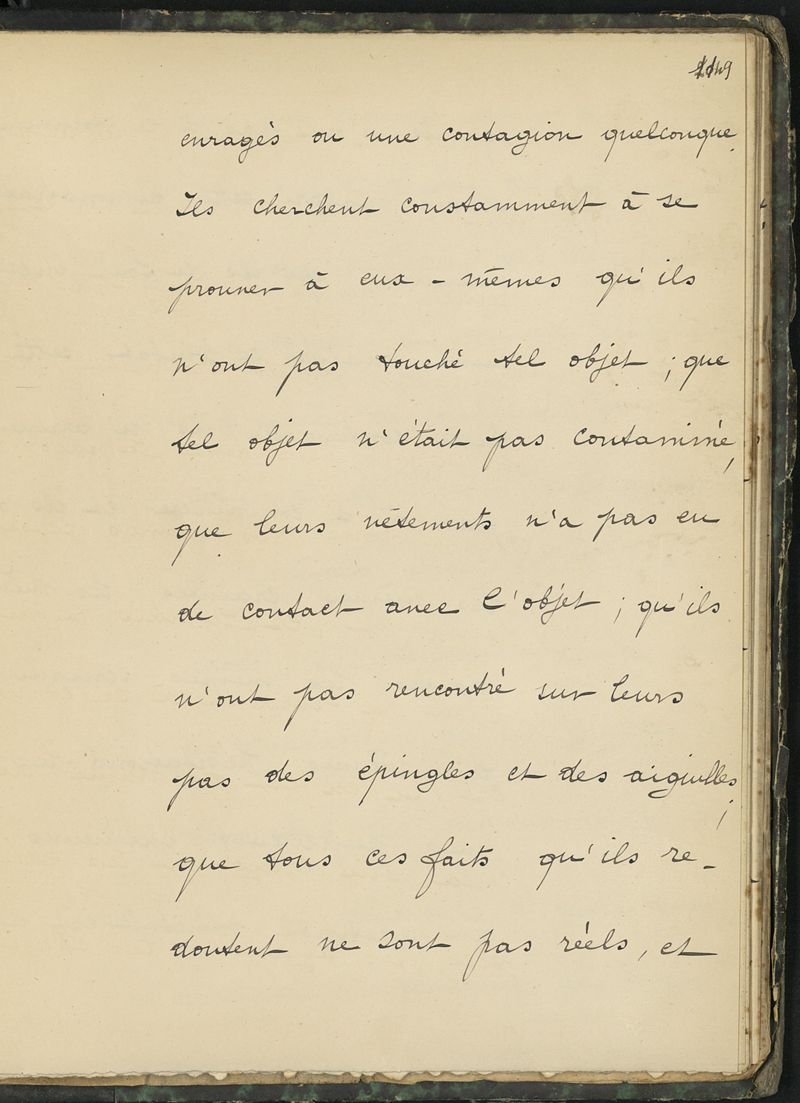 49
enragés ou une contagion quelconque.
Ils cherchent constamment à se
prouver à eux-mêmes qu'ils
n'ont pas touché tel objet ; que
tel objet n'était pas contaminé,
que leurs vêtements n'a pas eu
de contact avec l'objet ; qu'ils
n'ont pas rencontré sur leurs
pas des épingles et des aiguilles ;
que tous ces faits qu'ils re-
doutent ne sont pas réels, et